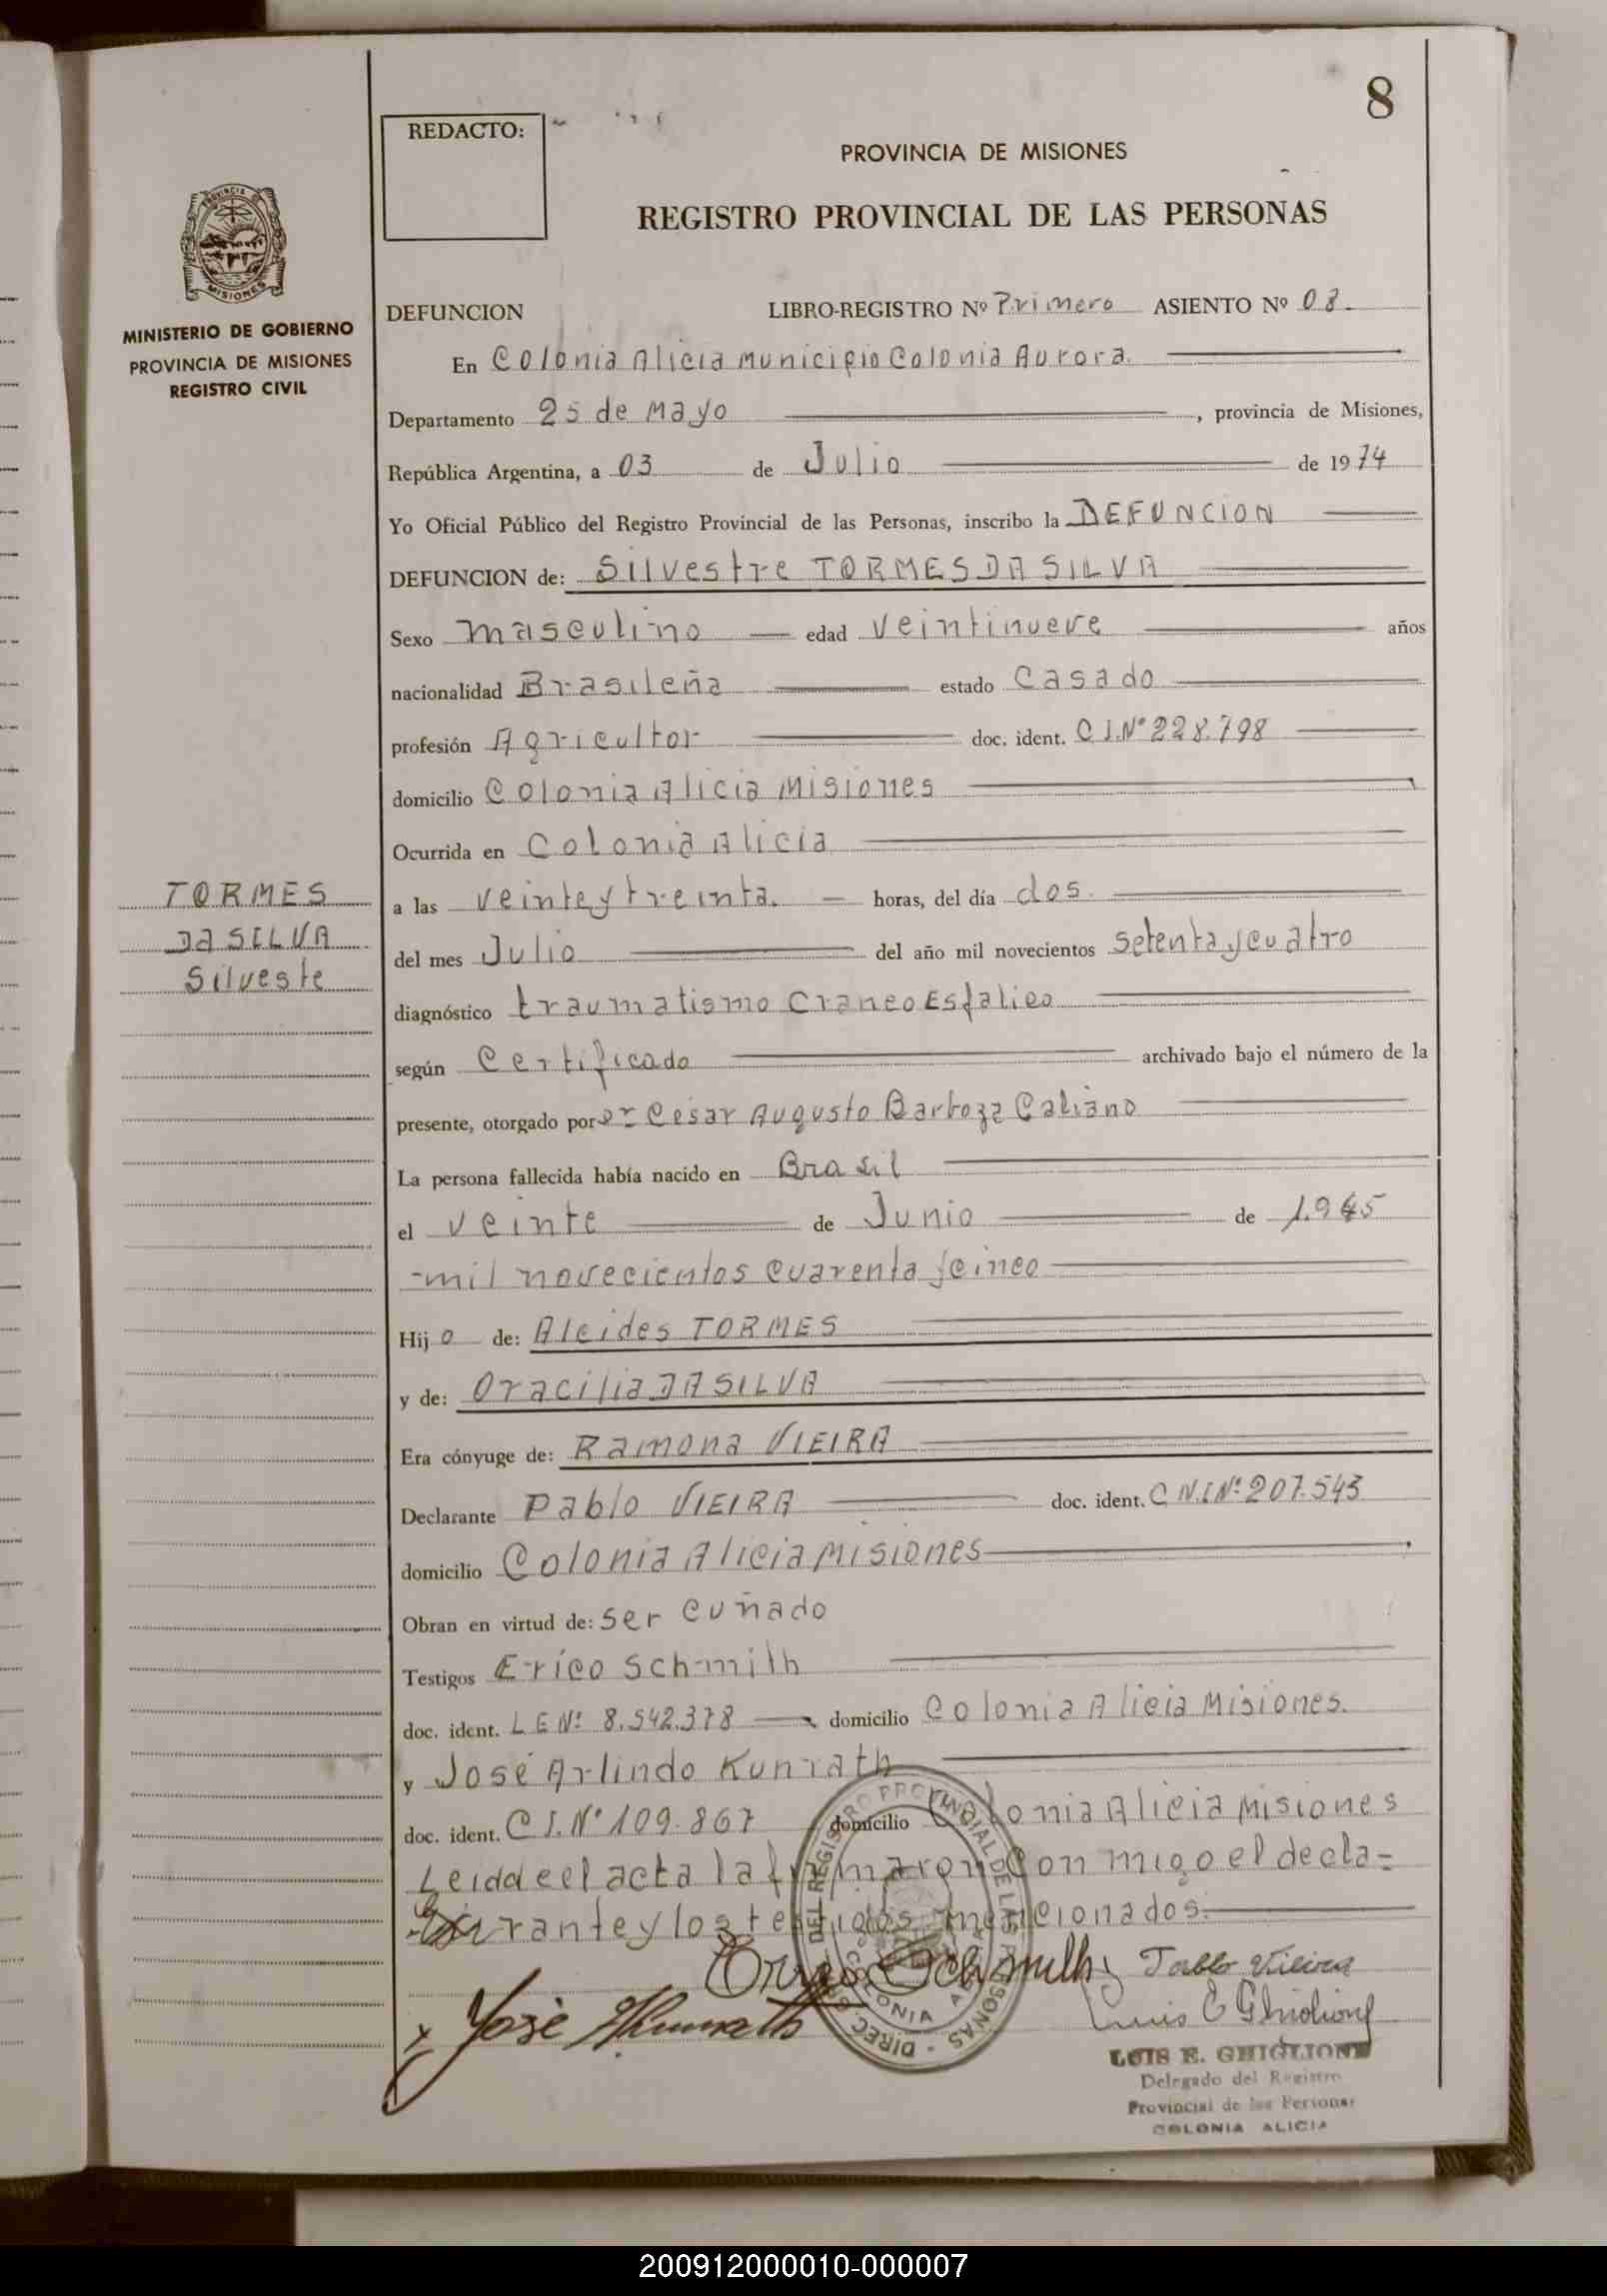 8
REDACTO:
PROVINCIA DE MISIONES
REGISTRO PROVINCIAL DE LAS PERSONAS
PROVINCIA DE
MISIONES
MINISTERIO DE GOBIERNO
PROVINCIA DE MISIONES
REGISTRO CIVIL
DEFUNCION LIBRO-REGISTRO Nº Primero ASIENTO Nº 08.
En Colonia Alicia Municipio Colonia Aurora.
Departamento 25 de Mayo, provincia de Misiones,
República Argentina, a 03 de Julio de 1974
Yo Oficial Público del Registro Provincial de las Personas, inscribo la DEFUNCION
DEFUNCION de: Silvestre TORMES DA SILVA
Sexo masculino edad veintinueve años
nacionalidad Brasileña estado Casado
profesión Agricultor doc. ident. C.I.Nº 228.798
domicilio Colonia Alicia Misiones
Ocurrida en Colonia Alicia
TORMES
DA SILVA
Silveste
a las veinte y treinta. horas, del día dos.
del mes Julio del año mil novecientos setenta y cuatro
diagnóstico traumatismo Craneo Esfalico
según Certificado archivado bajo el número de la
presente, otorgado por Dr Cesar Augusto Barboza Galiano
La persona fallecida había nacido en Brasil
el veinte de Junio de 1.945
-mil novecientos cuarenta y cinco
Hijo de: Alcides TORMES
y de: Oracilia DA SILVA
Era cónyuge de: Ramona VIEIRA
Declarante Pablo VIEIRA doc. ident. C.N.I.Nº 207.543
domicilio Colonia Alicia Misiones
Obran en virtud de: Ser Cuñado
Testigos Erico Schmilh
doc. ident. L E Nº 8.542.378 domicilio Colonia Alicia Misiones.
y José Arlindo Kunrath
doc. ident. C.I.Nº 109.867 domicilio Colonia Alicia Misiones
Leidde el acta la firmaron Con migo el decla=
rante y los testigos mencionados.
Erico Schmilh Pablo Vieira
José A Kunrath Luis E Ghiglione
DIREC. GRAL. DEL REGISTRO PROVINCIAL DE LAS PERSONAS
COLONIA ALICIA
LUIS E. GHIGLIONE
Delegado del Registro
Provincial de las Personas
COLONIA ALICIA
200912000010-000007